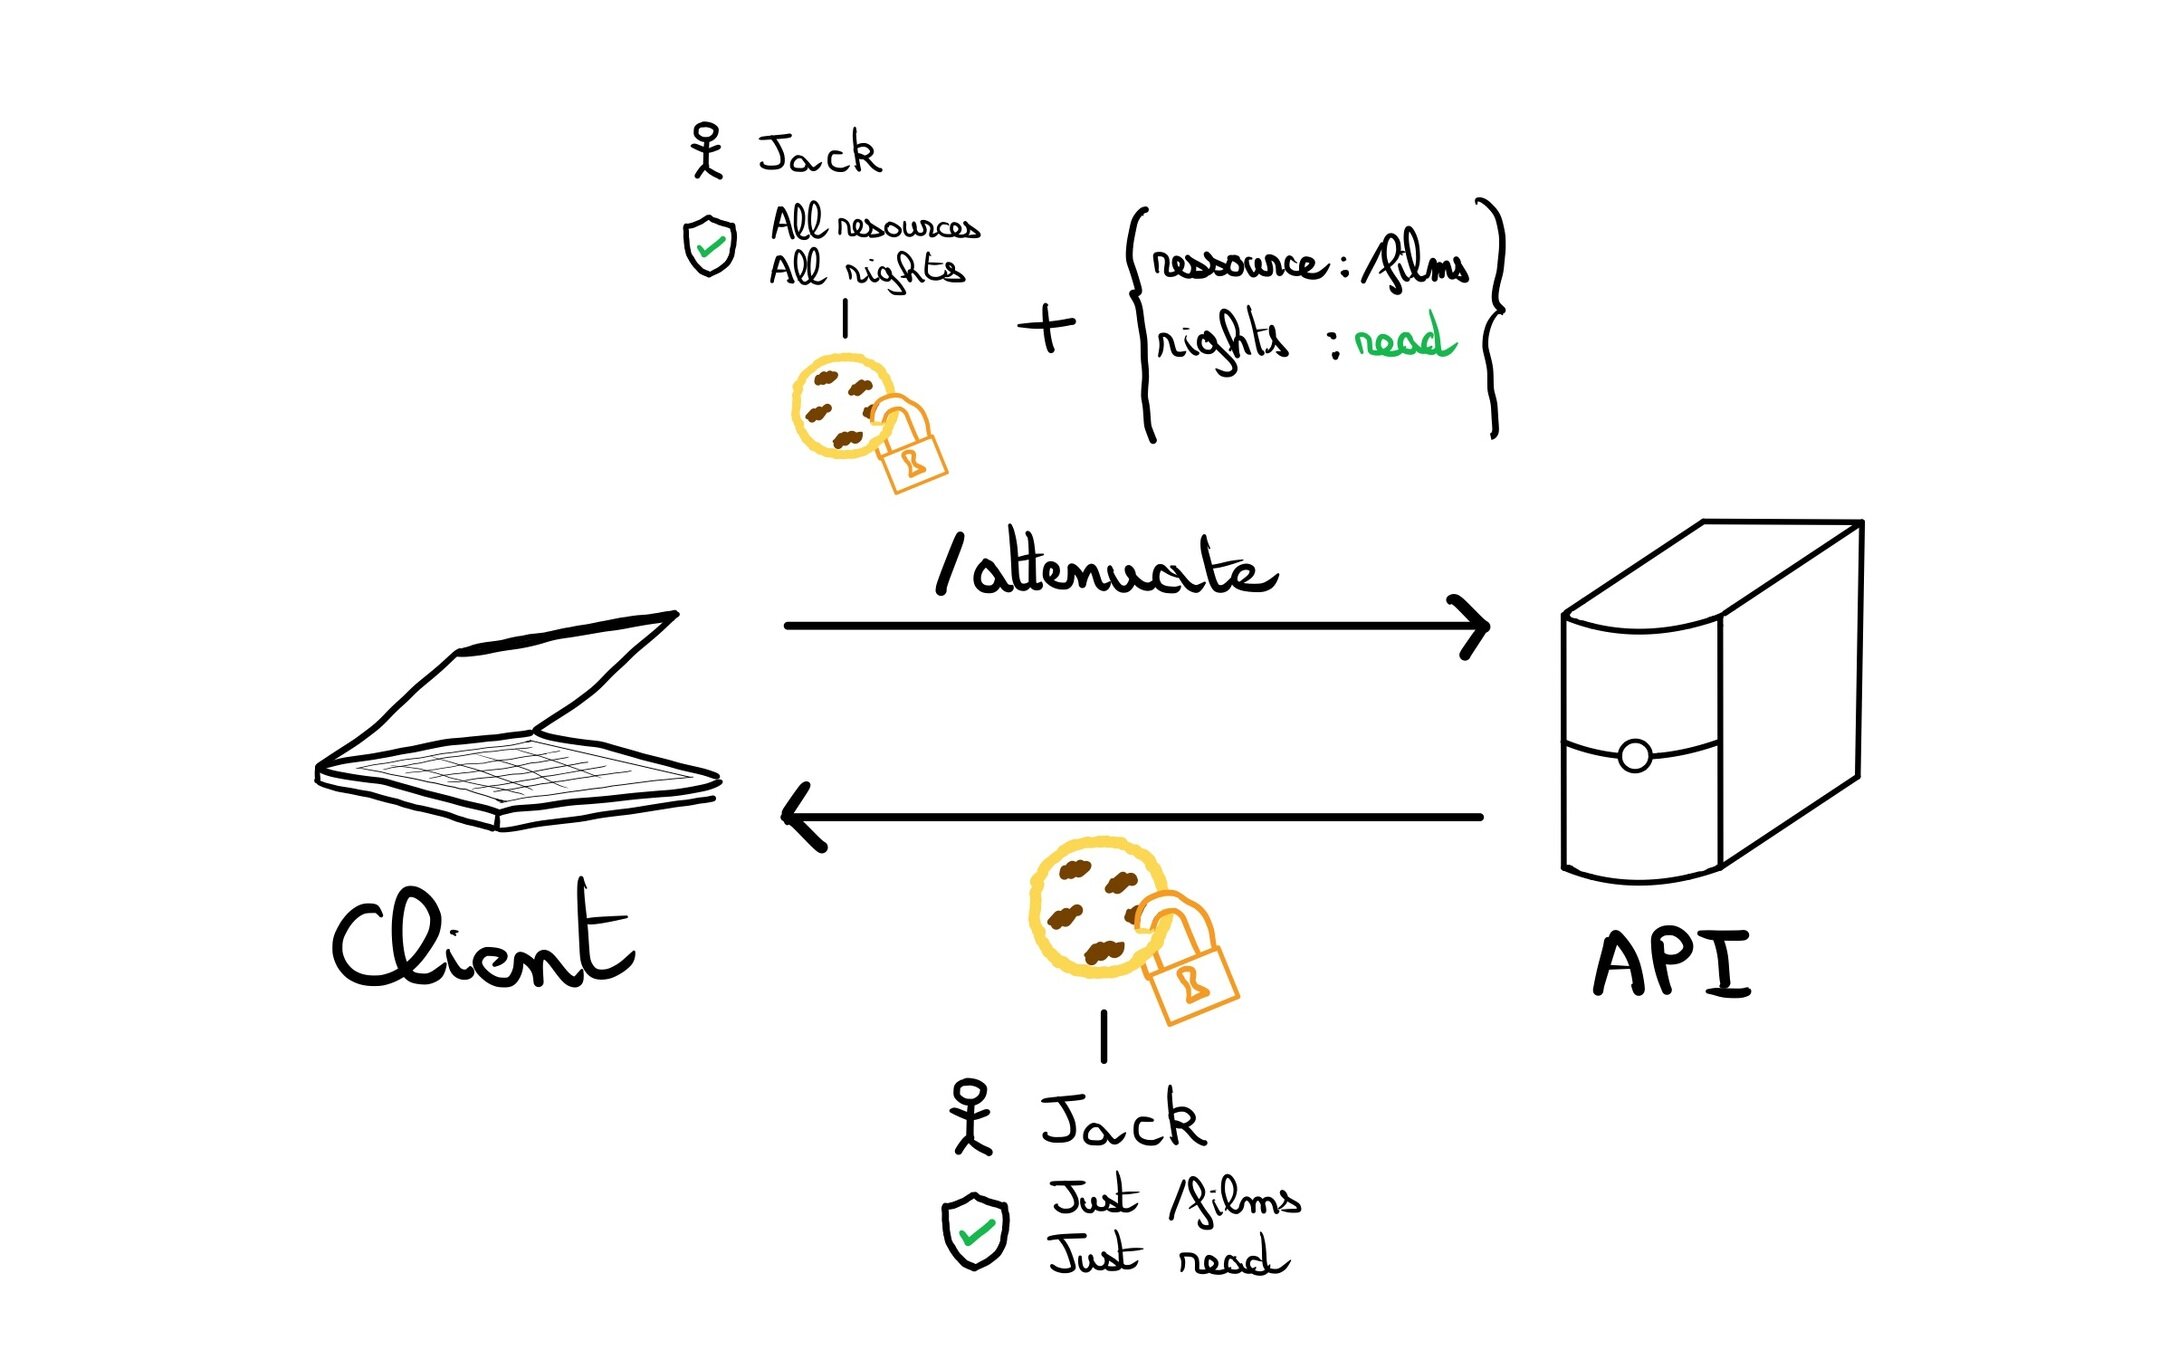 Jack
All resources
All rights
+
ressource : /films
rights : read
/attenuate
Client
API
Jack
Just /films
Just read